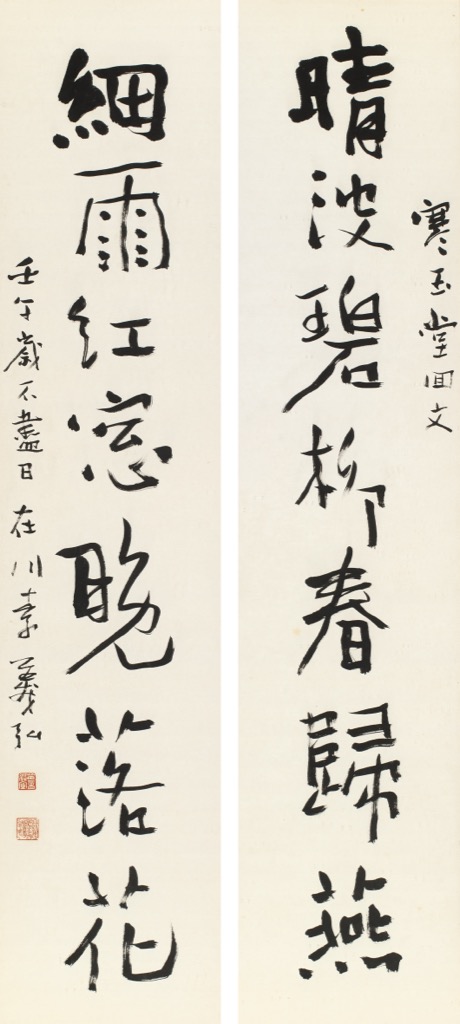 寒玉堂囬文
晴波碧柳春歸燕
細雨紅窓晚落花
壬午歲不盡日在川李義弘